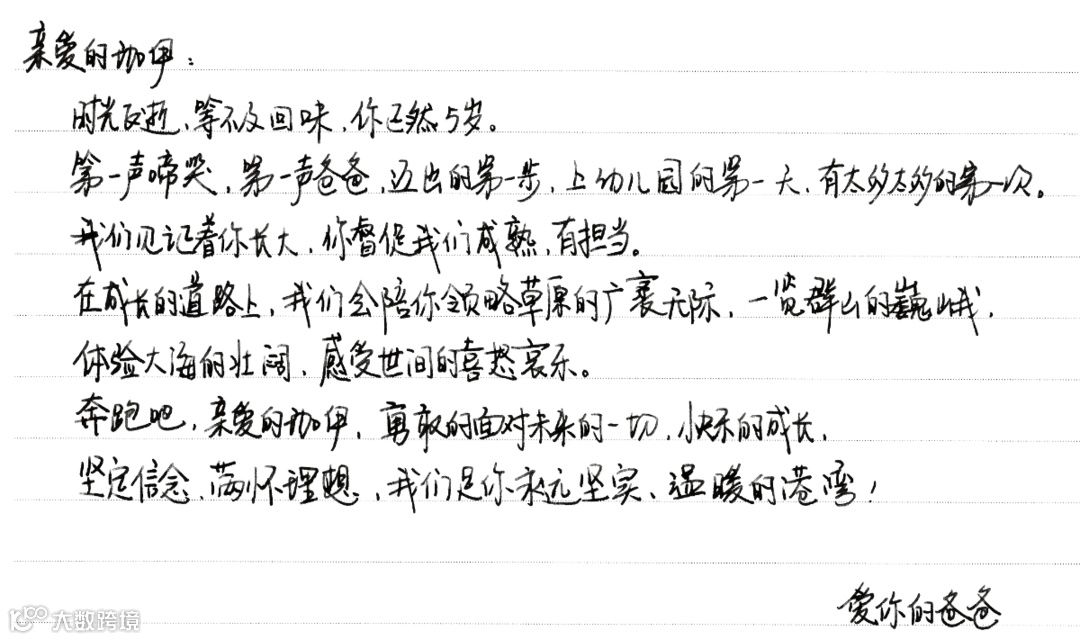 亲爱的珈伊：
时光飞逝、等不及回味，你已然5岁。
第一声啼哭，第一声爸爸，迈出的第一步，上幼儿园的第一天，有太多太多的第一次。
我们见记着你长大，你督促我们成熟，有担当。
在成长的道路上，我们会陪你领略草原的广袤无际，一览群山的巍峨，
体验大海的壮阔，感受世间的喜怒哀乐。
奔跑吧，亲爱的珈伊，勇敢的面对未来的一切，快乐的成长，
坚定信念、满怀理想，我们是你永远坚实、温暖的港湾！
爱你的爸爸
大数跨境